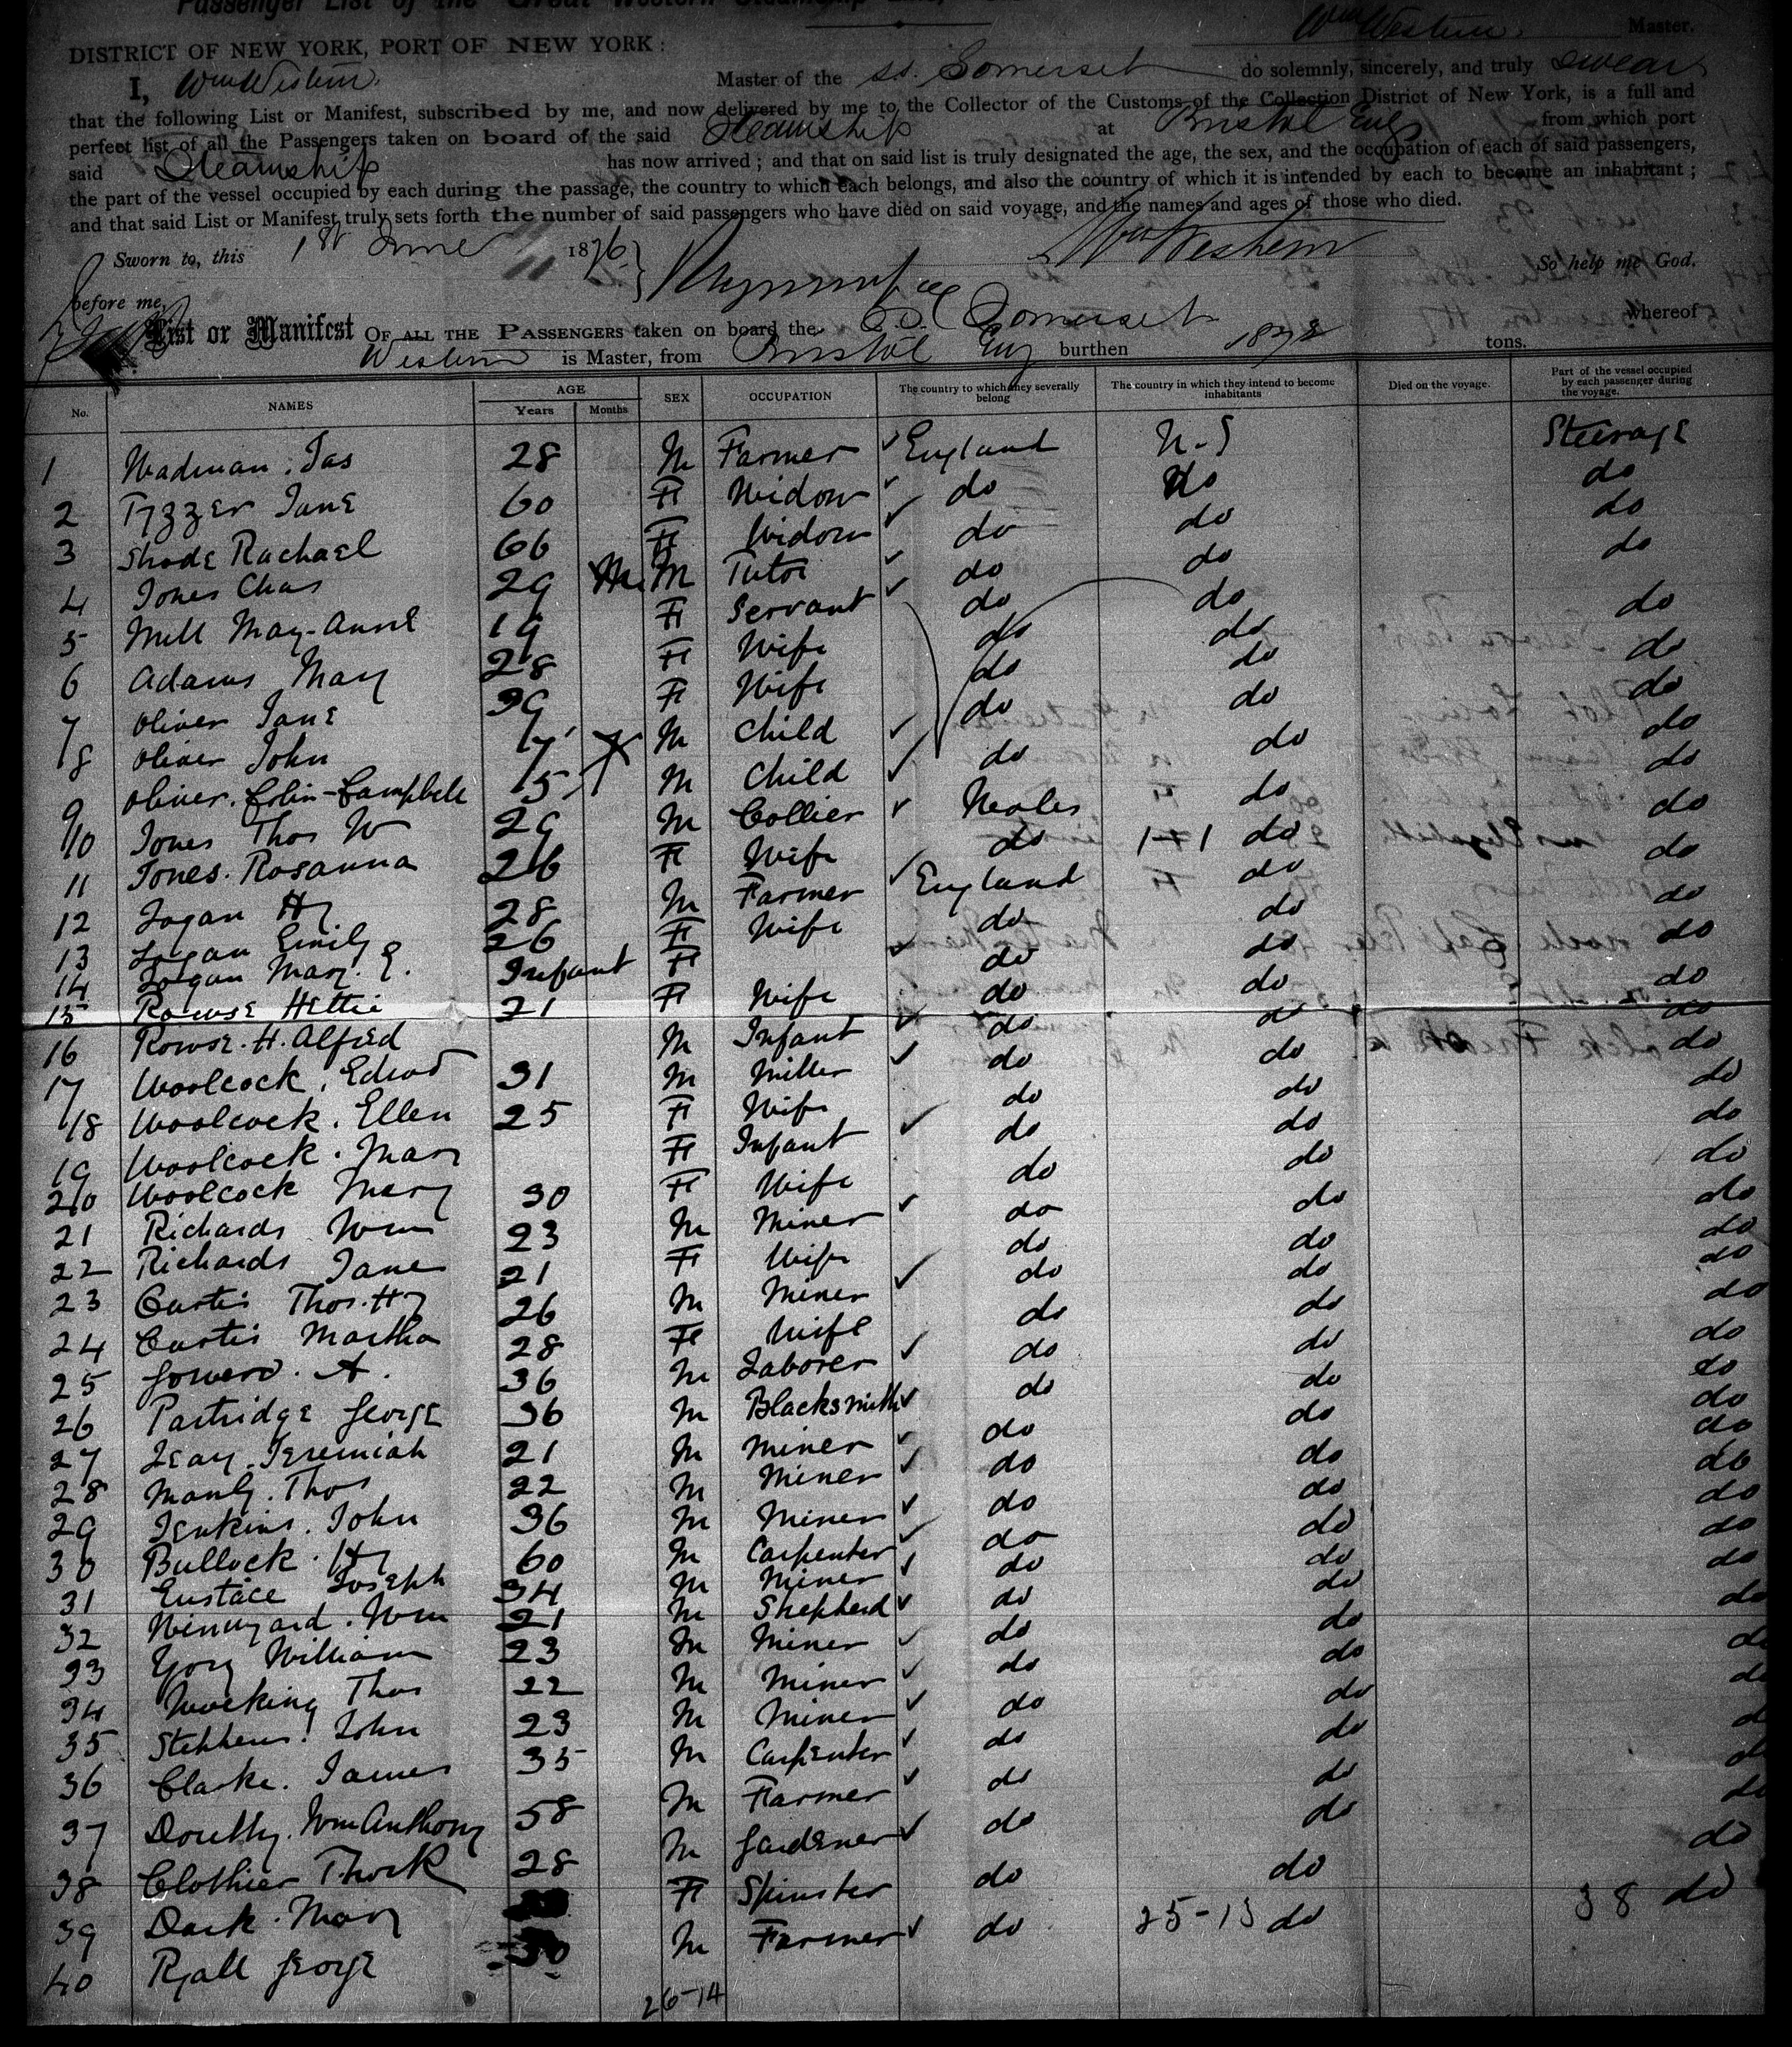 Passenger List of the Great Western Steamship Line,
Wm Western. Master.
DISTRICT OF NEW YORK, PORT OF NEW YORK:
I, Wm Western. Master of the ss. Somerset do solemnly, sincerely, and truly swear
that the following List or Manifest, subscribed by me, and now delivered by me to the Collector of the Customs of the Collection District of New York, is a full and
perfect list of all the Passengers taken on board of the said Steamship at Bristol Eng from which port
said Steamship has now arrived; and that on said list is truly designated the age, the sex, and the occupation of each of said passengers,
the part of the vessel occupied by each during the passage, the country to which each belongs, and also the country of which it is intended by each to become an inhabitant;
and that said List or Manifest truly sets forth the number of said passengers who have died on said voyage, and the names and ages of those who died.
Sworn to, this 1st June 1876 Wm Western So help me God.
before me,
List or Manifest OF ALL THE PASSENGERS taken on board the SS Somerset whereof
Western is Master, from Bristol Eng burthen tons.
No. NAMES AGE Years Months SEX OCCUPATION The country to which they severally belong The country in which they intend to become inhabitants Died on the voyage. Part of the vessel occupied by each passenger during the voyage.
1 Wadman. Jas 28 M Farmer ✓ England U-S Steerage
2 Tyzzer Jane 60 F Widow ✓ do do do
3 Shode Rachael 66 F Widow ✓ do do do
4 Jones Chas 29 M Tutor ✓ do do do
5 Mill May-Anne 19 F Servant ✓ do do do
6 Adams Mary 28 F Wife do do do
7 Oliver Jane 39 F Wife do do do
8 Oliver John 7 M Child ✓ do do do
9 Oliver. Colin-Campbell 15 M Child ✓ do do do
10 Jones Thos W 29 M Collier ✓ Wales do do
11 Jones. Rosanna 26 F Wife do 1+1 do do
12 Logan Hy 28 M Farmer ✓ England do do
13 Logan Emily 26 F Wife do do do
14 Logan Mary. E. Infant F ✓ do do do
15 Rowse Hettie 21 F Wife do do do
16 Rowse. H. Alfred M Infant ✓ do do do
17 Woolcock. Edwd 31 M Miller ✓ do do do
18 Woolcock. Ellen 25 F Wife do do do
19 Woolcock. Mary F Infant ✓ do do do
20 Woolcock Mary 30 F Wife do do do
21 Richards Wm 23 M Miner ✓ do do do
22 Richards Jane 21 F Wife do do do
23 Curtis Thos. Hy 26 M Miner ✓ do do do
24 Curtis Martha 28 F Wife do do do
25 A. 36 M Laborer ✓ do do do
26 Partridge George 36 M Blacksmith ✓ do do do
27 Leay. Jeremiah 21 M Miner ✓ do do do
28 Manly. Thos 22 M Miner ✓ do do do
29 Jenkins. John 36 M Miner ✓ do do do
30 Bullock. Hy 60 M Carpenter ✓ do do do
31 Eustace Joseph 34 M Miner ✓ do do do
32 Winnyard. Wm 21 M Shepherd ✓ do do do
33 Gory William 23 M Miner ✓ do do do
34 Thos 22 M Miner ✓ do do do
35 Stephens. John 23 M Miner ✓ do do do
36 Clarke. James 35 M Carpenter ✓ do do do
37 Doutty. Wm Anthony 58 M Farmer ✓ do do do
38 Clothier Thos K 28 M Gardener ✓ do do do
39 Dark. Mary F Spinster do do do
40 Ryall George 30 M Farmer ✓ do 25-13 do 38 do
26-14